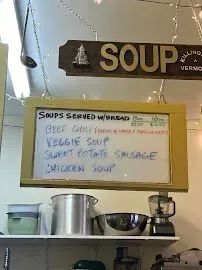 SOUP
SOUPS SERVED W/BREAD
BEEF CHILI
VEGGIE SOUP
SWEET POTATO SAUSAGE
CHICKEN SOUP